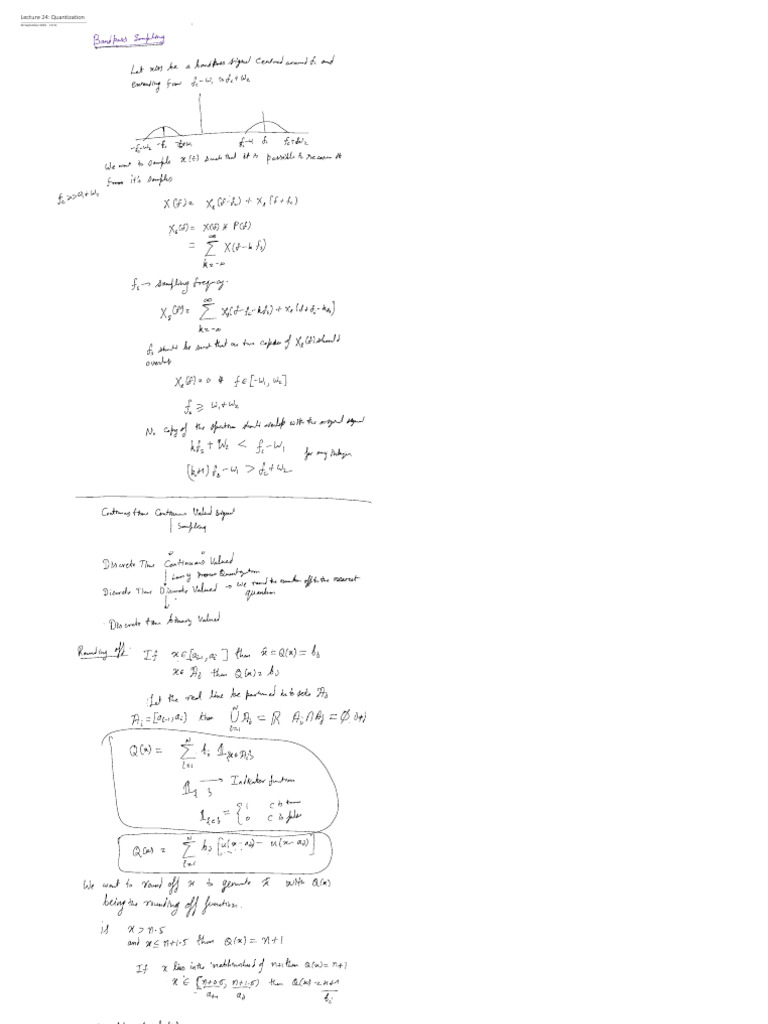 Lecture 24: Quantization
Bandpass Sampling
Let x(t) be a bandpass signal centred around fc and
extending from fc-W1 to fc+W2
-fc-W2 -fc fc-W1 fc fc+W2
We want to sample x(t) such that it is possible to recover it
from it's samples
fc >> W1+W2
X(f) = Xl(f-fc) + Xl(f+fc)
Xs(f) = X(f) * P(f)
= ∑_{k=-∞}^{∞} X(f-k fs)
fs → sampling frequency.
Xs(f) = ∑_{k=-∞}^{∞} Xl(f-fc-kfs) + Xl(f+fc-kfs)
fs should be such that no two copies of Xl(f) should
overlap
Xl(f) = 0 ∉ f ∈ [-W1, W2]
fs ⩾ W1+W2
No copy of the spectrum should overlap with the original signal
kfs + W2 < fc - W1
for any integer
(k+1)fs - W1 > fc + W2
Continuous time Continuous Valued Signal
↓ Sampling
Discrete Time Continuous Valued
↓ Lossy Process Quantization
Discrete Time Discrete Valued → We round the number off to the nearest
quantum
↓
Discrete time binary Valued
Rounding off: If x∈[ai-1, ai] then x̂ = Q(x) = bi
x∈ Ai then Q(x) = bi
Let the real line be partioned into sets Ai
Ai = [ai-1, ai) then ⋃_{i=1}^{N} Ai = ℝ Ai ∩ Aj = ∅ i≠j
Q(x) = ∑_{i=1}^{N} bi 𝟙{x∈Ai}
𝟙{ } → Indicator function
𝟙{c} = { 1 c is true
0 c is false
Q(x) = ∑_{i=1}^{N} bi [u(x-ai-1) - u(x-ai)]
We want to round off x to generate x̂ with Q(x)
being the rounding off function.
is x > n.5
and x ≤ n+1.5 then Q(x) = n+1
If x lies in the neighbourhood of n+1 then Q(x) = n+1
x ∈ [n+0.5, n+1.5) then Q(x) = n+1
ai-1 ai bi